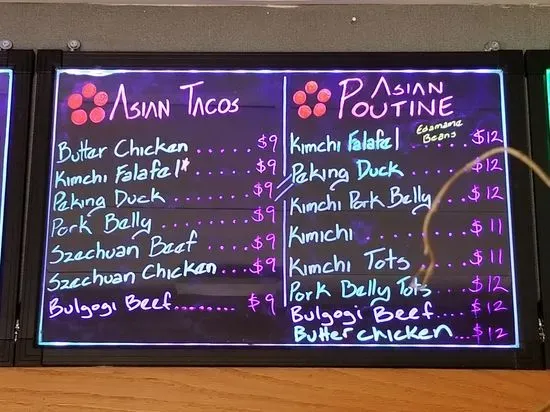 Asian Tacos
Butter Chicken ...... $9
Kimchi Falafel* ..... $9
Peking Duck ...... $9
Pork Belly ....... $9
Szechuan Beef .... $9
Szechuan Chicken .... $9
Bulgogi Beef........ $9
Asian
Poutine
Kimchi Falafel ....... $12
Edamame
Beans
Peking Duck ....... $12
Kimchi Pork Belly ... $12
Kimichi ........ $11
Kimchi Tots ...... $11
Pork Belly Tots ... $12
Bulgogi Beef.... $12
Butter chicken... $12